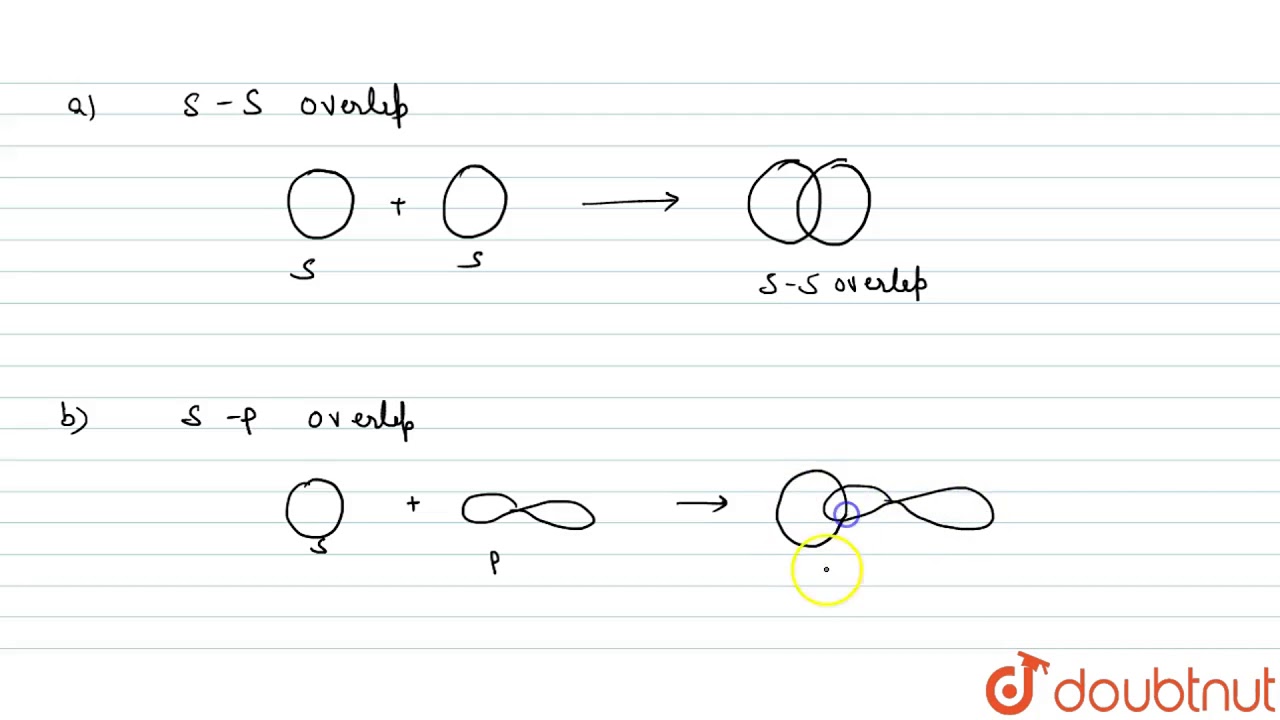 a) S - S overlep
+
S S
S-S overlep
b) S -p overlep
+
S
p
doubtnut